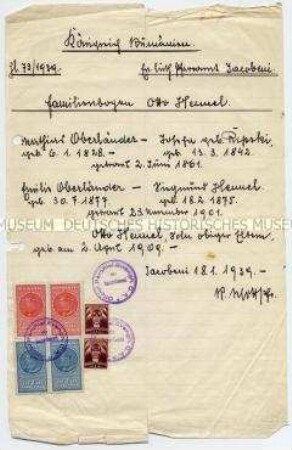 Königreich Rumänien.
Zl 73/1939. Ev. luth. Pfarramt Jacobeni.
Familienbogen Otto Hennel.
Mathias Oberländer – Josefa geb. Ripski
geb. 6.1.1828. – geb. 13.3.1842
getraut 2. Juni 1861.
Emilie Oberländer – Siegmund Hennel.
geb. 30.7.1877 geb. 18.2.1875.
getraut 23. November 1901.
DEUTSCHES HISTORISCHES MUSEUM
Otto Hennel Sohn obiger Eltern
geb. am 2. April 1909. –
Jacobeni 18.1.1939. –